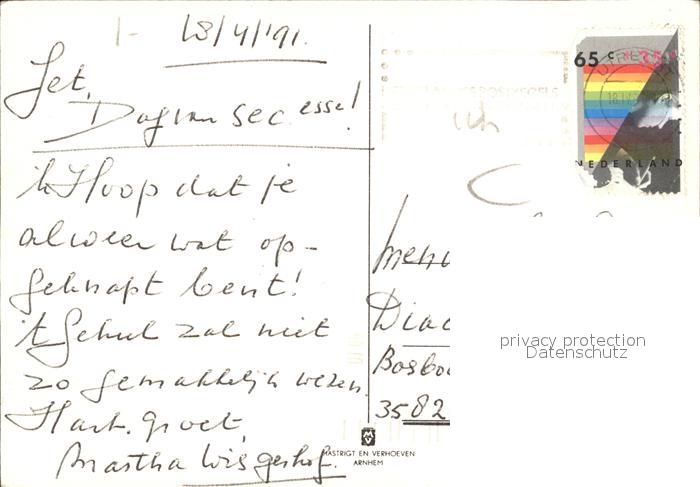 18/4/'91.
Jet,
Dag van sec. esse!
ik Hoop dat je
alweer wat op-
geknapt bent!
't Gehul zal niet
zo gemakkelijk wezen.
Hart. groet,
Martha Wisgerhof.
65 c + 35 c
NEDERLAND
Diac
Bosboo
3582
MASTRIGT EN VERHOEVEN
ARNHEM
privacy protection
Datenschutz